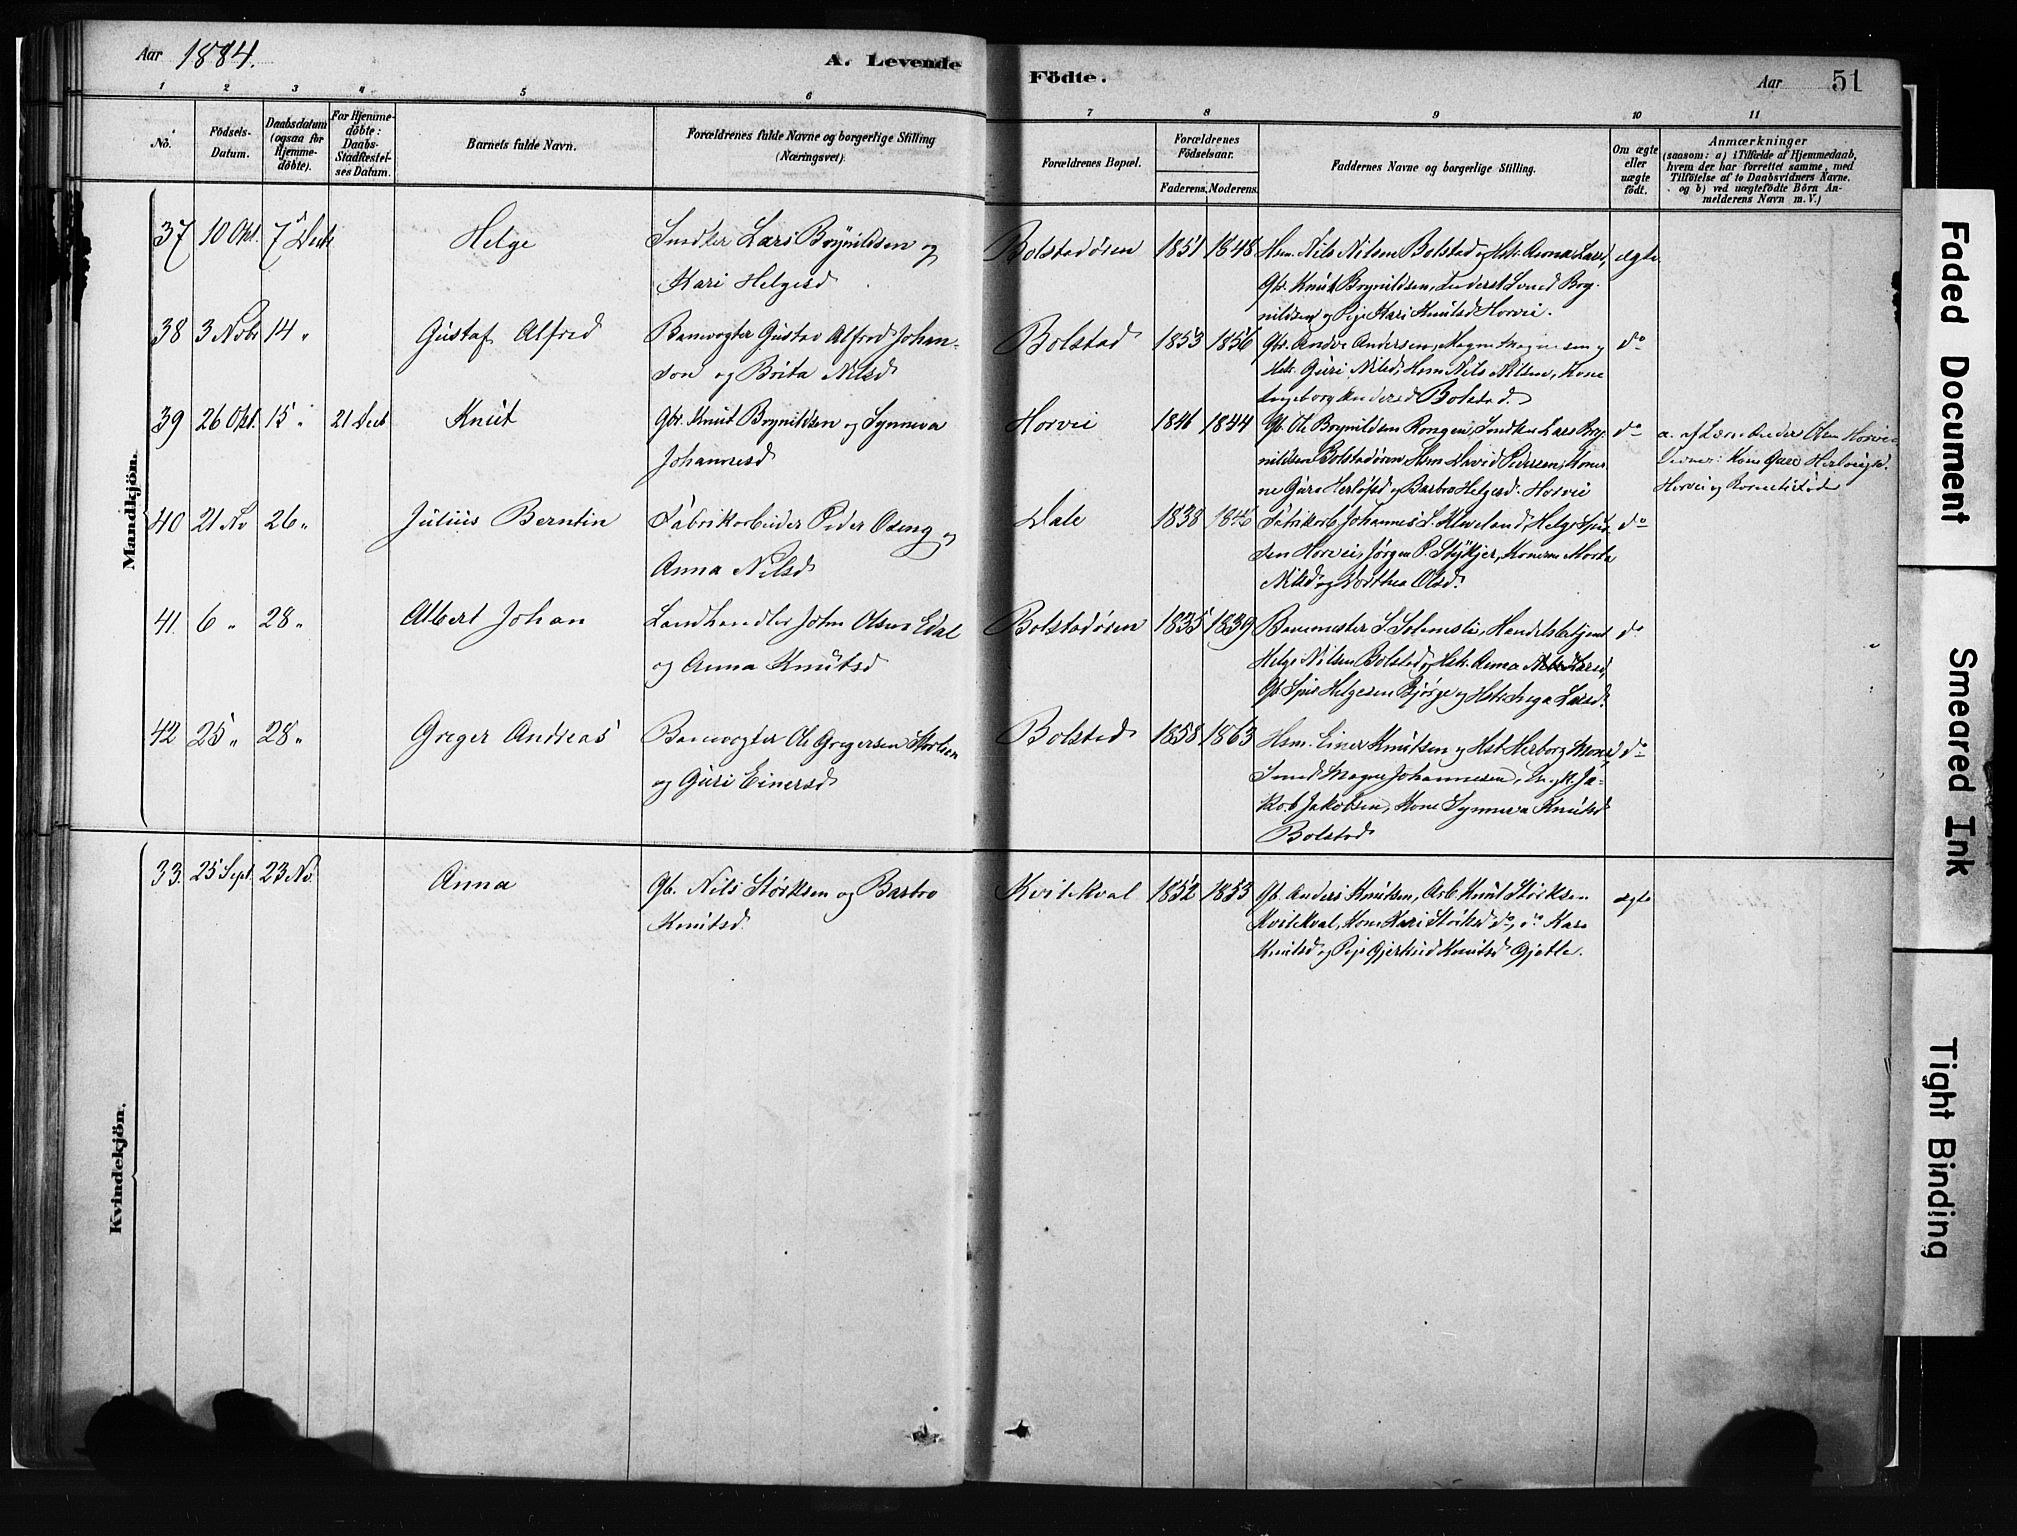 Aar 1884.
A. Levende
Födte.
Aar
51
1 2 3 4 5 6 7 8 9 10 11
No.
Födsels-
Datum.
Daabsdatum
(ogsaa for
Hjemme-
döbte).
For Hjemme-
döbte:
Daabs-
Stadfæstel-
ses Datum.
Barnets fulde Navn.
Forældrenes fulde Navne og borgerlige Stilling
(Næringsvei).
Forældrenes Bopæl.
Forældrenes
Födselsaar.
Faderens. Moderens.
Faddernes Navne og borgerlige Stilling.
Om ægte
eller
uægte
födt.
Anmærkninger
(saasom: a) i Tilfælde af Hjemmedaab,
hvem der har forrettet samme, med
Tilföielse af to Daabsvidners Navne.
og b) ved uægtefödte Börn An-
melderens Navn m. V.)
Mandkjön.
37 10 Okt. 7 Decb Helge
Snedker Lars Brynildsen og
Kari Helgesd
Bolstadøren 1851 1848
Hsm. Nils Nilsen Bolstad og Hstr. Anna Larsd,
Gbr. Knut Brynildsen, Bryn-
nildsen og Pige Kari Knutsd Horvei.
ægte
38 3 Novbr 14 „ Gustaf Alfred
Banevogter Gustav Alfred Johan-
son og Brita Nilsd
Bolstad 1853 1856
Gbr. Andve Andersen, Magne Magnesen og
Hstr. Guri Nilsd, Hsm Nils Nilsen, Kone
Ingeborg Andersd Bolstad.
do
39 26 Okt. 15 „ 21 Decb Knut
Gbr. Knut Brynildsen og Synneva
Johannesd
Horvei 1846 1844
Gb. Ole Brynildsen Rongen, Snedker Lars Bry-
nildsen Bolstadøren, Hsm David Pedersen, Koner-
ne Guro Herlofsd og Barbro Helgesd Horvei
do
a. af Læn Peder Olsen Horvei
Vidner: Kone Guro
Horvei og Barnets
40 21 Nov 26 „ Julius Berntin
Fabrikarbeider Peder Oseng og
Anna Nilsd
Dale 1838 1846
Fabrikarb Johannes L. Kleveland, Helge
sen Horvei, Jørgen P. Konerne Marta
Nilsd og Dorthea Olsd.
do
41. 6 „ 28 „ Albert Johan
Landhandler John Olsen Edal
og Anna Knutsd
Bolstadøren 1835 1839
Banemester S. Solemsli, Handelsbetjent
Helge Nilsen Bolstad, Hstr. Anna Larsd,
Gb. Sjur Helgesen Bjørge og Hstr. Inga Larsd.
do
42 25 „ 28 „ Greger Andreas
Banevogter Ole Gregersen
og Guri Einersd
Bolstad 1858 1863
Hsm. Einer Knutsen og Hst Herborg Monsd,
Smed Magne Johannesen, Ja-
kob Jakobsen, Kone Synneva Knutsd
Bolstad
do
Kvindekjön.
33. 25 Sept. 23 Nov Anna
Gb. Nils Størksen og Barbro
Knutsd.
Kvitekval 1852 1853
Gb. Anders Knutsen, Arb. Knut Størksen
Kvitekval, Kone Kari Størksd do, do Kari
Knutsd og Pige Gjertrud Knutsd Gjetle.
ægte
Faded Document
Smeared Ink
Tight Binding